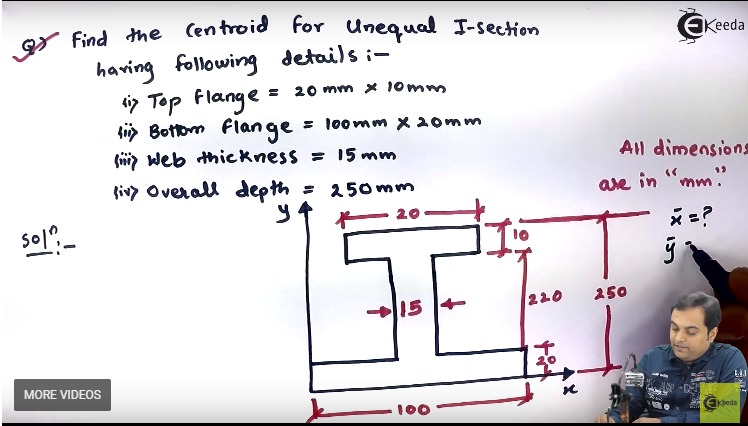 Q) Find the Centroid for Unequal I-section
having following details :-
(i) Top flange = 20mm × 10mm
(ii) Bottom flange = 100mm × 20mm
(iii) Web thickness = 15mm
(iv) Overall depth = 250mm
Soln :-
EKeeda
All dimensions
are in "mm."
x̄ = ?
ȳ =
y
20
10
15
220
250
20
x
100
MORE VIDEOS
EKeeda